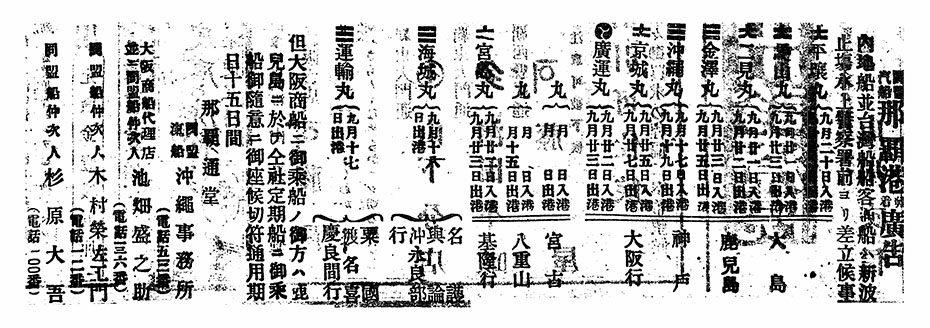 同盟汽船那覇港発着広告
內地船並台灣船船客満船ハ新波
止塲水上警察署前ヨリ差立候事
平壤丸 九月二十日入港
大島
二見丸 九月廿一日入港 九月廿二日出港
鹿兒島
金澤丸 九月廿二日入港 九月廿三日出港
沖繩丸 九月十九日出港
神戸
京城丸 九月廿七日出港
大阪行
廣運丸 九月廿二日入港 九月廿三日出港
丸 月 日入港 月 日出港
宮古
丸 月 日入港 月十五日出港
八重山
宮島丸 九月廿二日入港 九月廿三日出港
基隆行
海城丸 九月十八日出港
名護 與論 沖永良部行
運輸丸 九月十七日出港
粟國 渡名喜 慶良間行
但大阪商船ニ御乗船ノ御方ハ鹿
兒島ニ於テ仝社定期船ニ御乗
船御隨意ニ御座候切符通用期
日十五日間
那覇通堂
同盟汽船 沖繩事務所
(電話五二番)
大阪商船代理店
並ニ同盟船仲次人 池畑盛之助
(電話三六番)
同盟船仲次人 木村榮左工門
(電話一二番)
同盟船仲次人 杉原大吾
(電話一〇〇番)